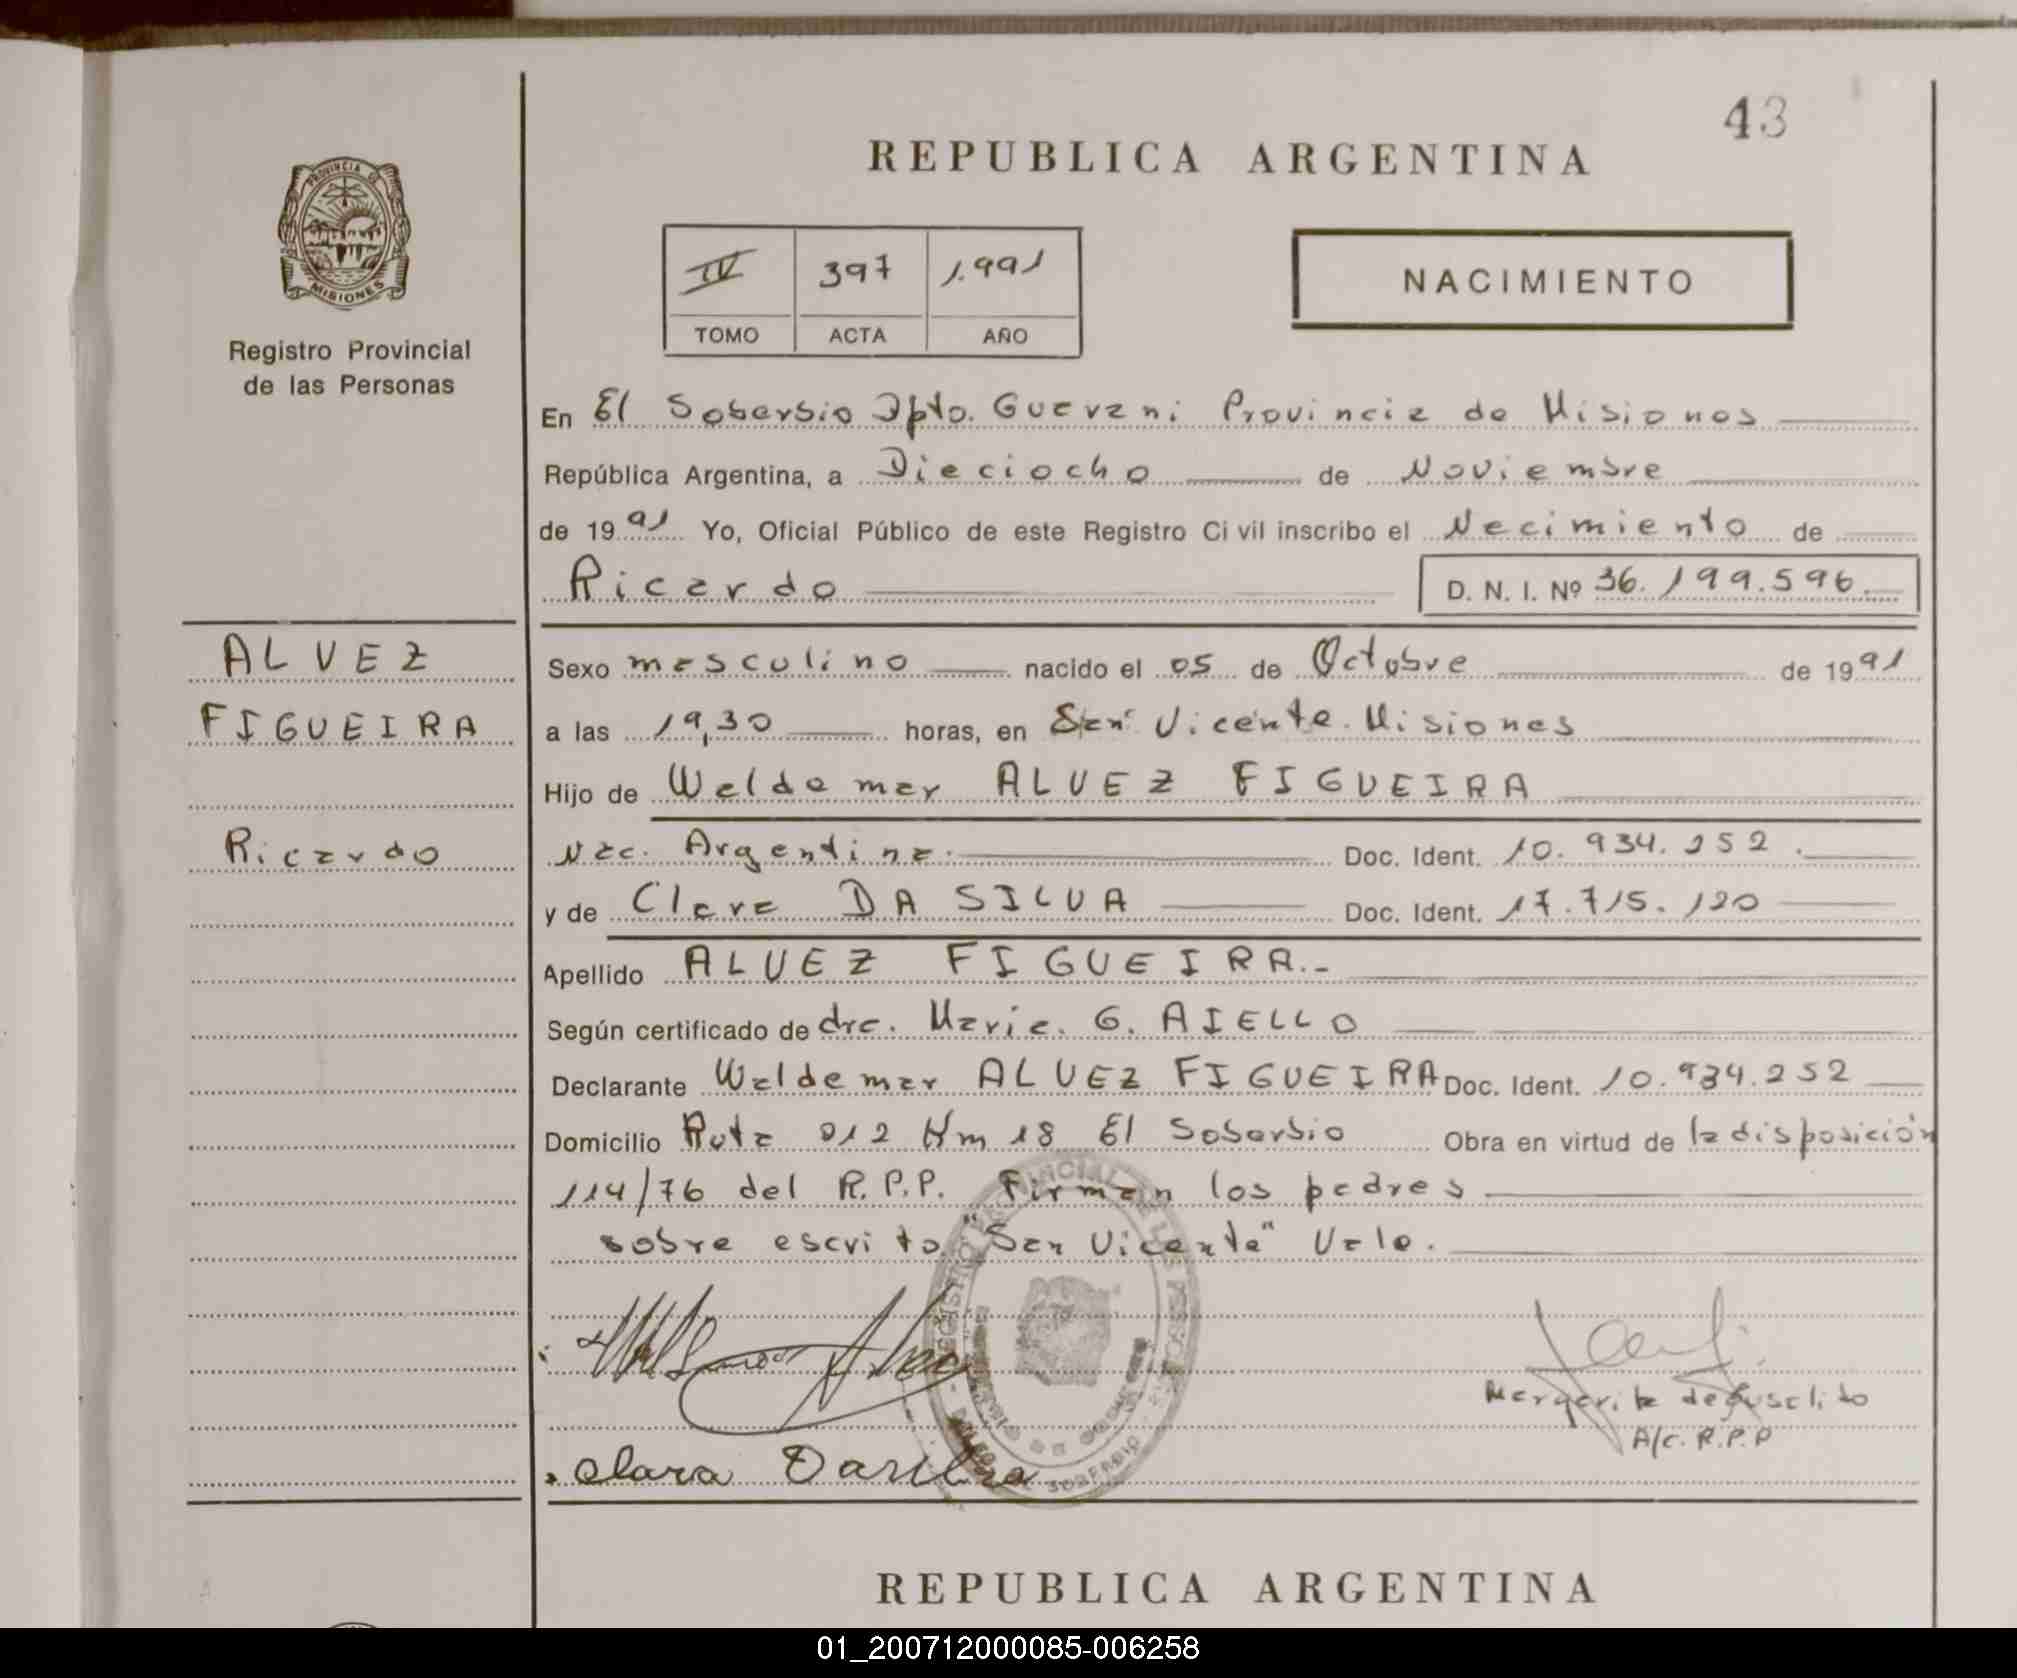 43
REPUBLICA ARGENTINA
PROVINCIA DE
MISIONES
Registro Provincial
de las Personas
IV 397 1.991
TOMO ACTA AÑO
NACIMIENTO
En El Soberbio Dpto. Guarani Provincia de Misiones
República Argentina, a Dieciocho de Noviembre
de 1991 Yo, Oficial Público de este Registro Civil inscribo el Nacimiento de
Ricardo D. N. I. Nº 36.199.596
ALVEZ
FIGUEIRA
Ricardo
Sexo masculino nacido el 05 de Octubre de 1991
a las 19,30 horas, en San Vicente. Misiones
Hijo de Waldemar ALVEZ FIGUEIRA
Nac. Argentina. Doc. Ident. 10.934.252.
y de Clara DA SILVA Doc. Ident. 17.715.120
Apellido ALVEZ FIGUEIRA.-
Según certificado de dra. Maria. G. AIELLO
Declarante Waldemar ALVEZ FIGUEIRA Doc. Ident. 10.934.252
Domicilio Ruta 012 Km 18 El Soberbio Obra en virtud de la disposición
114/76 del R.P.P. Firman los padres
sobre escrito "San Vicente" Vale.
Margarita de
A/c. R.P.P
Clara Dasilva
REPUBLICA ARGENTINA
01_200712000085-006258